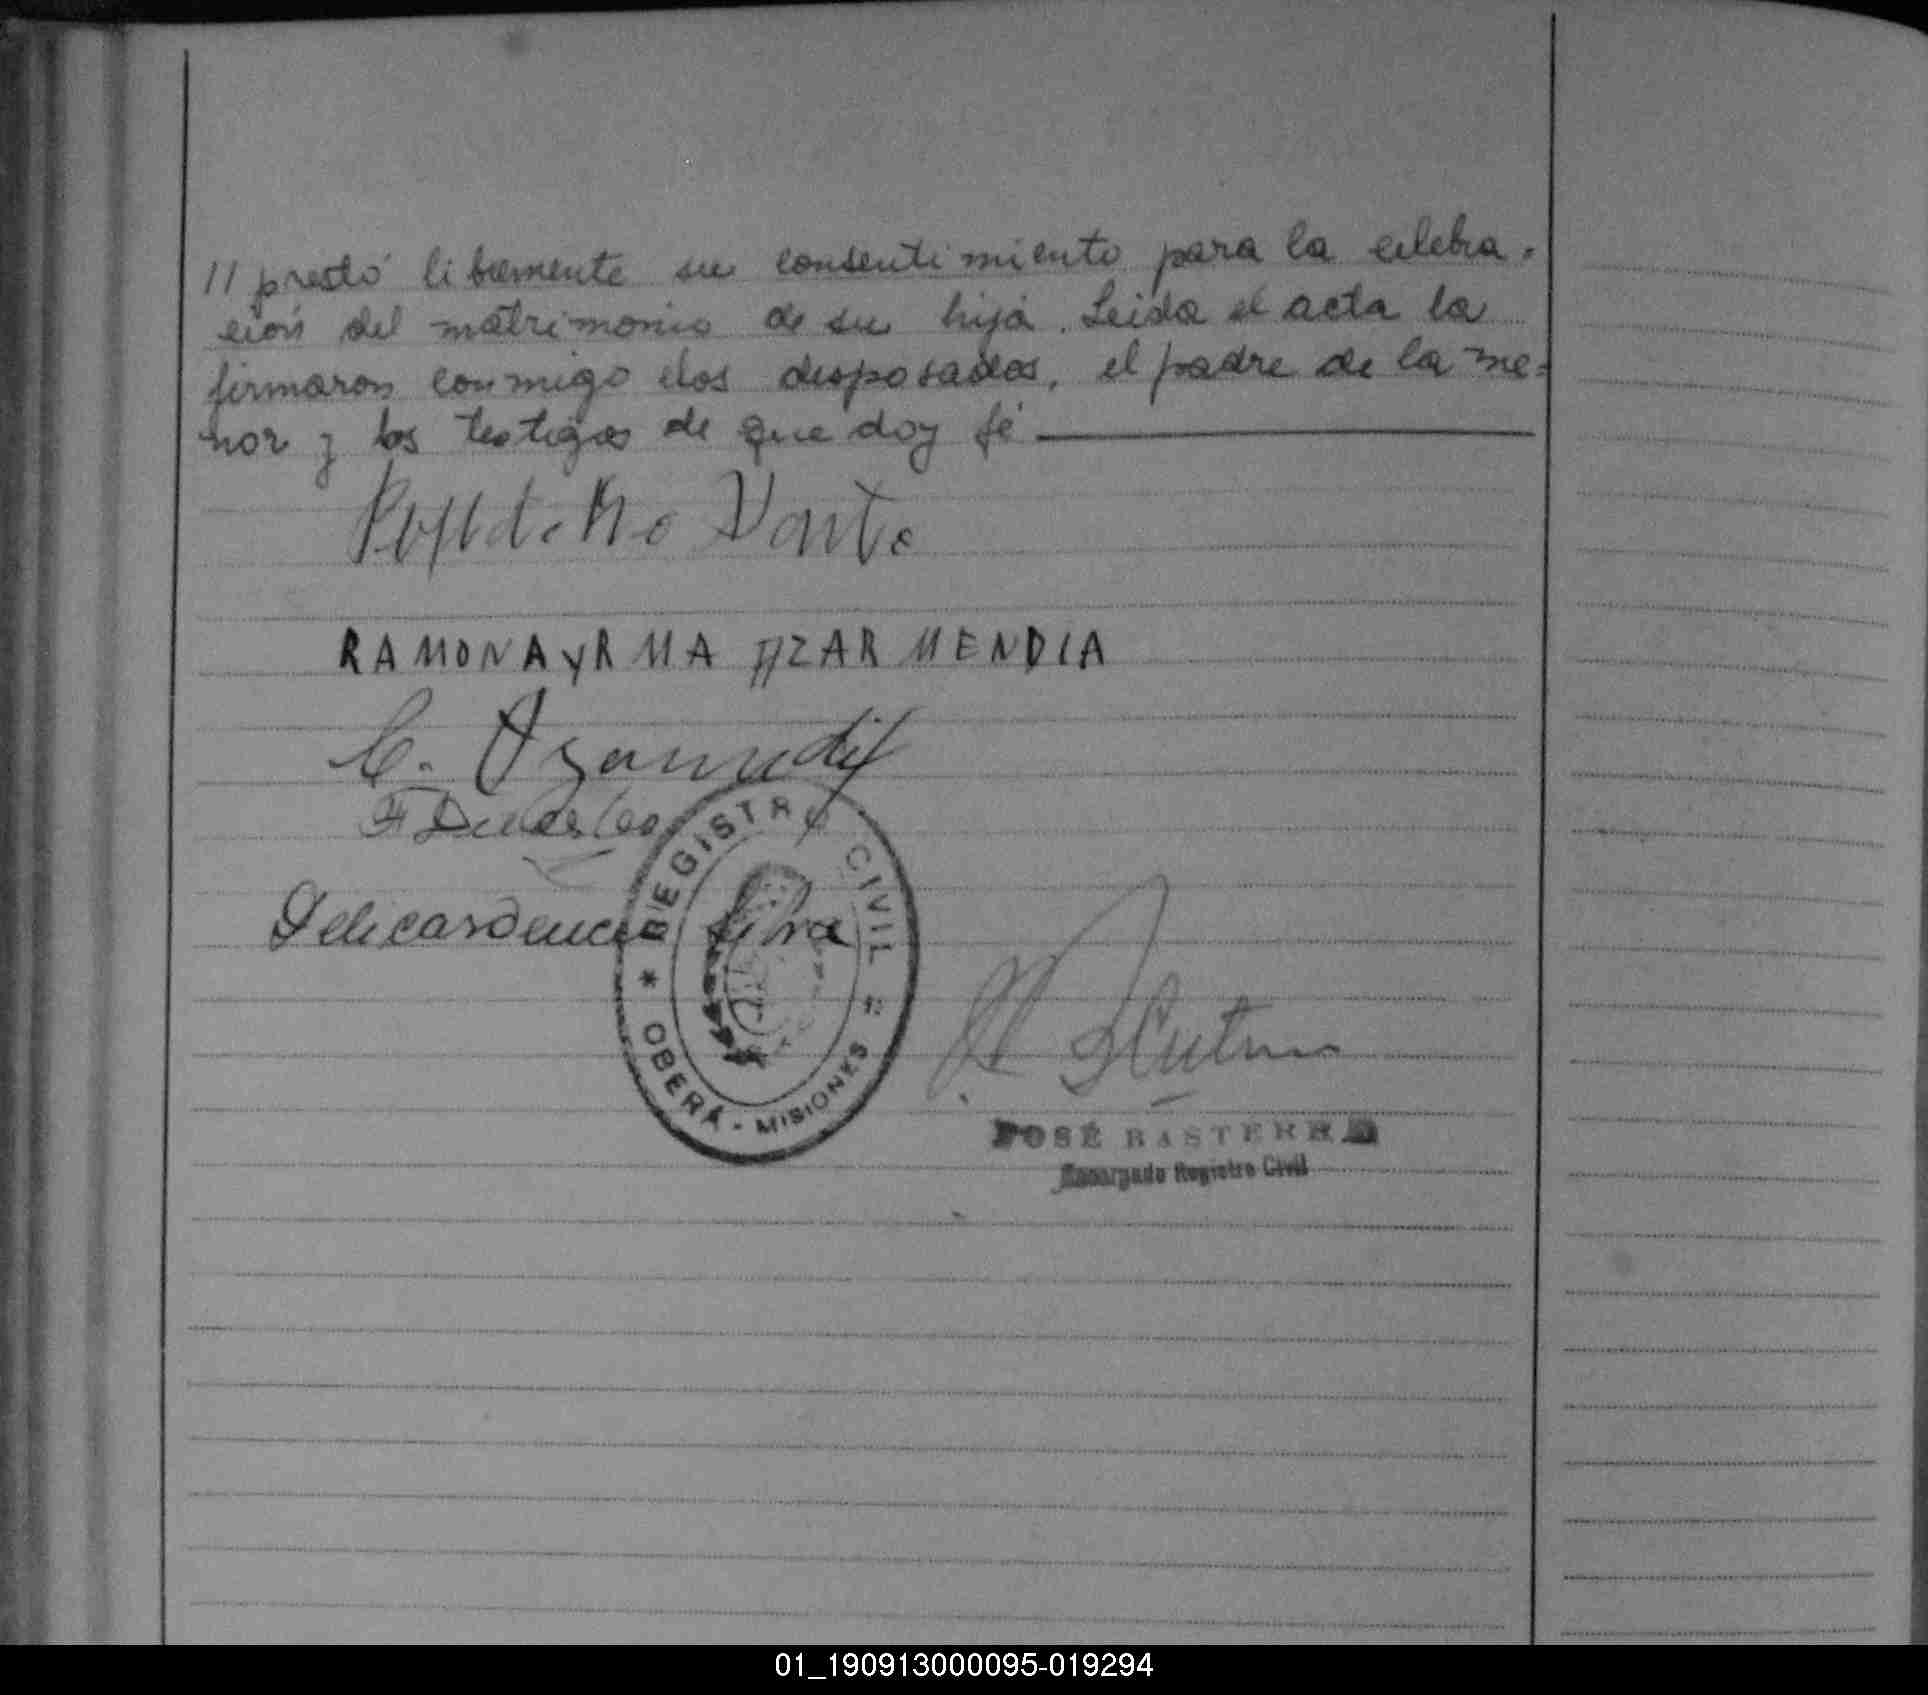 // prestó libremente su consentimiento para la celebra-
ción del matrimonio de su hija. Leida el acta la
firmaron conmigo los desposados, el padre de la me-
nor y los testigos de que doy fé
RAMONA YRMA AZARMENDIA
C.
REGISTRO CIVIL
Silva
* OBERÁ - MISIONES *
JOSÉ BASTERRA
Encargado Registro Civil
01_190913000095-019294